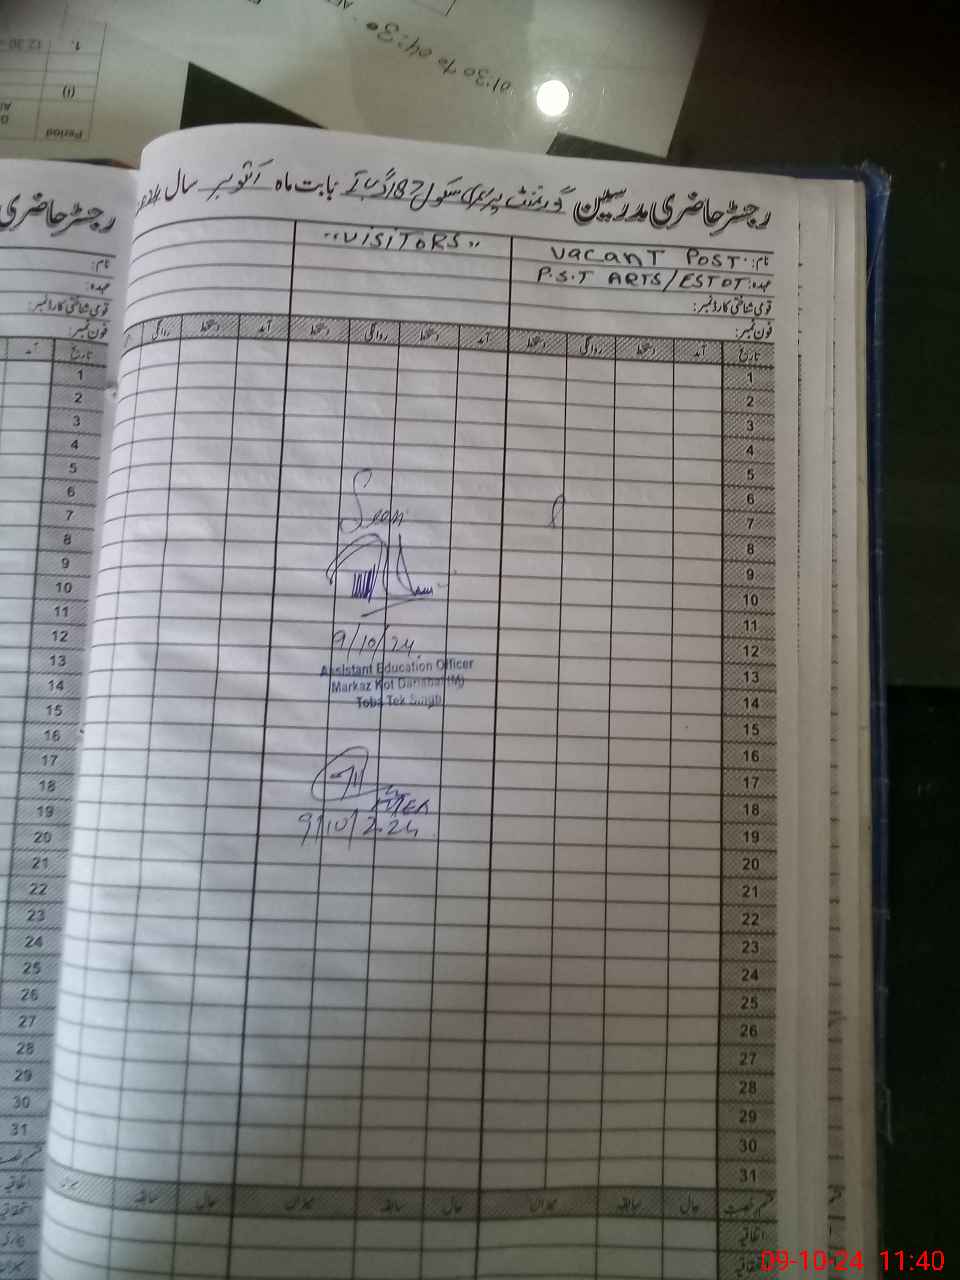 01:30 To 04:30
Period
(i)
1.
12.30
رجسٹر حاضری مدرسین گورنمنٹ پرائمری سکول 187 گ ب بابت ماہ اکتوبر سال
رجسٹر حاضری
"VISITORS"
نام: VACANT POST
عہدہ: P.S.T ARTS/ESTDT
قومی شناختی کارڈ نمبر:
فون نمبر:
نام:
عہدہ:
قومی شناختی کارڈ نمبر:
فون نمبر:
تاریخ آمد دستخط روانگی دستخط آمد دستخط روانگی دستخط آمد دستخط روانگی
تاریخ آمد
1
2
3
4
5
6
7
8
9
10
11
12
13
14
15
16
17
18
19
20
21
22
23
24
25
26
27
28
29
30
31
1
2
3
4
5
6
7
8
9
10
11
12
13
14
15
16
17
18
19
20
21
22
23
24
25
26
27
28
29
30
31
Seen
9/10/24
Assistant Education Officer
Markaz Kot Danabad (M)
Toba Tek Singh
9/10/2024
قسم رخصت حال سابقہ میزان حال سابقہ میزان حال سابقہ میزان
اتفاقیہ
09-10-24 11:40